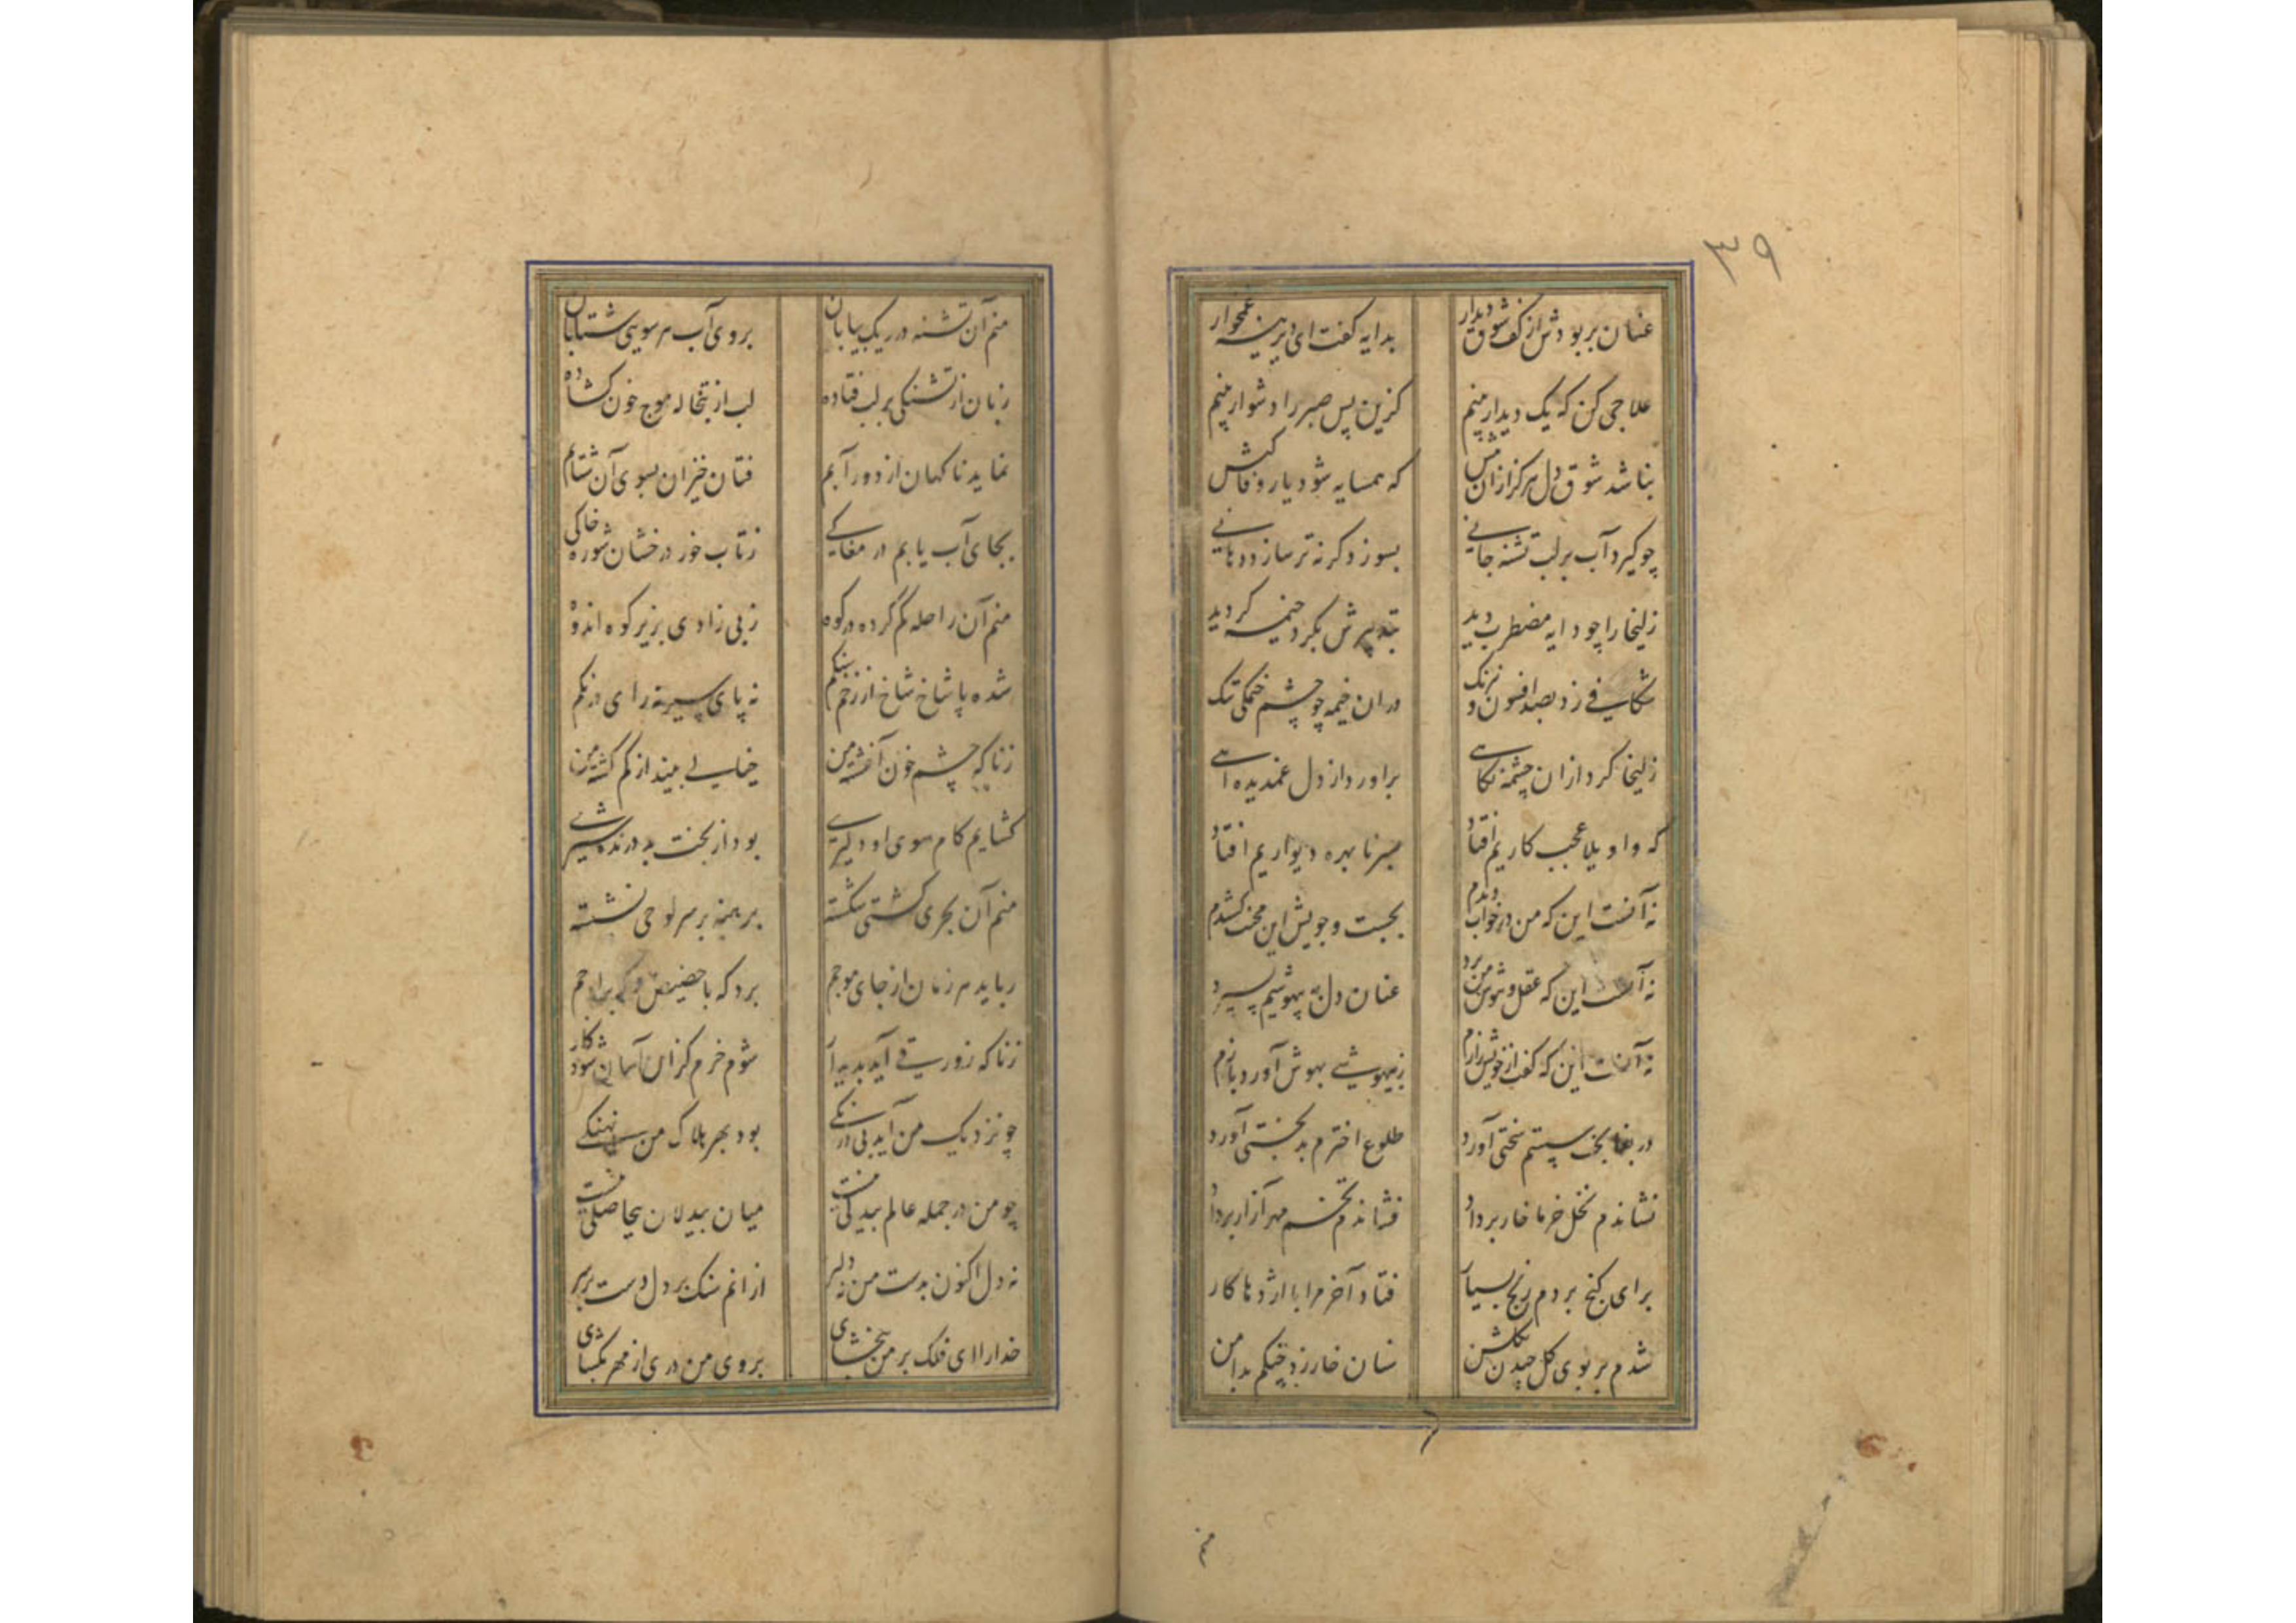 ۳۹
عنان بربودش از کف شوق دیدار بدایه گفت ای دیرینه غمخوار
علاجی کن که یک دیدار بینم کزین پس صبر را دشوار بینم
نباشد شوق دل هرگز ازان بیش که همسایه شود یار وفاکیش
چو گیرد آب بر لب تشنه جانی بسوزد گر نه تر سازد دهانی
زلیخا را چو دایه مضطرب دید بتدبیرش بگرد خیمه گردید
شکافی زد بصد افسون و نیرنگ دران خیمه چو چشم خیمگی تنگ
زلیخا کرد ازان خیمه نگاهی براورد از دل غمدیده آهی
که واویلا عجب کاریم افتاد بسر نابهره دیواریم افتاد
نه آنست این که من در خواب دیدم بجست و جویش این محنت کشیدم
نه آنست این که عقل و هوش من برد عنان دل به بیهوشیم بسپرد
نه آنست این که گفت از خویش رازم ز بیهوشی بهوش آورد بازم
دریغا بخت سستم سختی آورد طلوع اخترم بدبختی آورد
نشاندم نخل خرما خار بر داد فشاندم تخم مهر آزار بر داد
برای گنج بردم رنج بسیار فتاد آخر مرا با اژدها کار
شدم بر بوی گل چیدن بگلشن سنان خار زد چنگم بدامن
منم
منم آن تشنه در ریگ بیابان بروی آب هر سویی شتابان
زبان از تشنگی بر لب فتاده لب از تبخاله موج خون گشاده
نماید ناگهان از دور آبم فتان خیزان بسوی آن شتابم
بجای آب یابم در مغاکی ز تاب خور درخشان شوره خاکی
منم آن راحله گم کرده در کوه ز بی زادی بزیر کوه اندوه
شده پا شاخ شاخ از زخم سنگم نه پای سیر نه رای درنگم
زناگه چشم خون آغشته من خیالی بیند از گم گشته من
گشایم گام سوی او دلیری بود از بخت بد درنده شیری
منم آن بحری کشتی شکسته برهنه بر سر لوحی نشسته
رباید هر زمان از جای موجم برد گه با حضیض و گه بر اوجم
زناگه زورقی آید پدیدار شوم خرم کزان آسان شود کار
چو نزدیک من آید بی درنگی بود بهر هلاک من نهنگی
چو من در جمله عالم بیدلی نیست میان بیدلان بیحاصلی نیست
نه دل اکنون بدست من نه دلبر ازانم سنگ بر دل دست بر سر
خدارا ای فلک بر من ببخشای بروی من دری از مهر بگشای